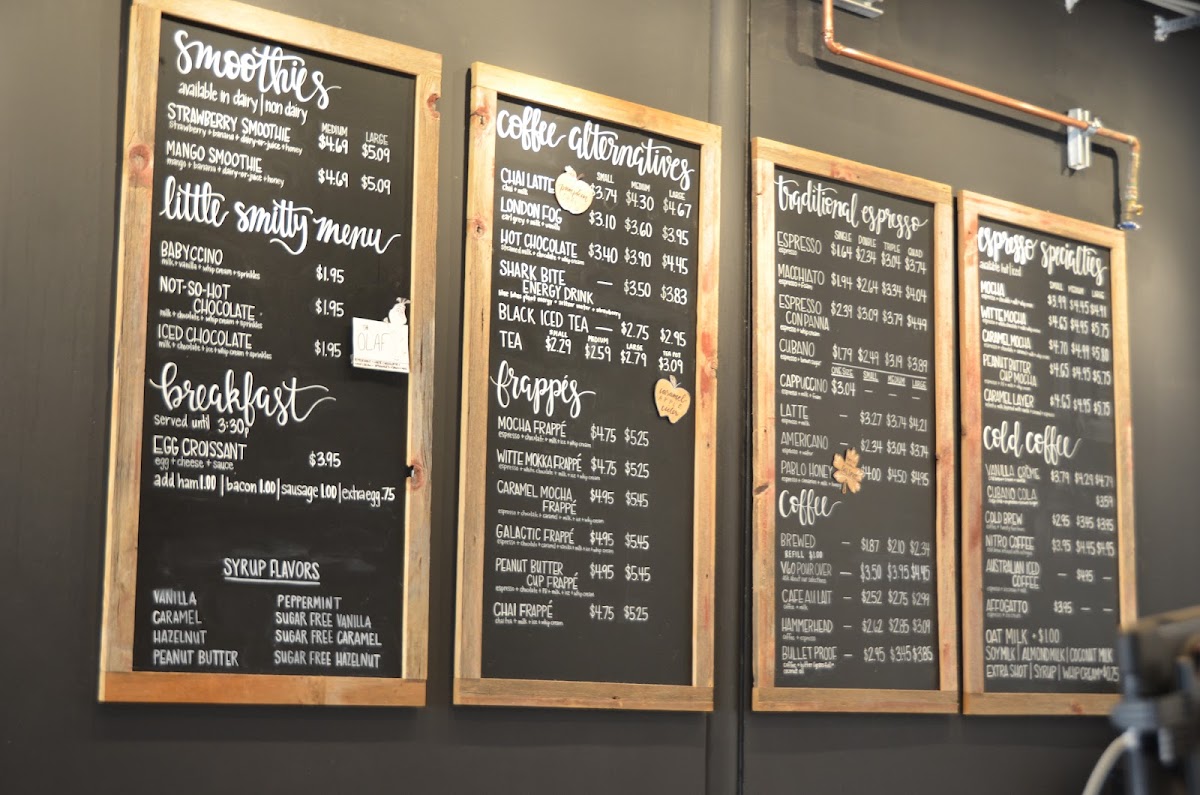 smoothies
available in dairy | non dairy
MEDIUM LARGE
STRAWBERRY SMOOTHIE $4.69 $5.09
strawberry + banana + dairy-or-juice + honey
MANGO SMOOTHIE $4.69 $5.09
mango + banana + dairy-or-juice + honey
little smitty menu
BABYCCINO $1.95
milk + vanilla + whip cream + sprinkles
NOT-SO-HOT
CHOCOLATE $1.95
milk + chocolate + whip cream + sprinkles
ICED CHOCOLATE $1.95
milk + chocolate + ice + whip cream + sprinkles
OLAF
breakfast
served until 3:30
EGG CROISSANT $3.95
egg + cheese + sauce
add ham 1.00 | bacon 1.00 | sausage 1.00 | extra egg .75
SYRUP FLAVORS
VANILLA PEPPERMINT
CARAMEL SUGAR FREE VANILLA
HAZELNUT SUGAR FREE CARAMEL
PEANUT BUTTER SUGAR FREE HAZELNUT
coffee alternatives
SMALL MEDIUM LARGE
CHAI LATTE $3.74 $4.30 $4.67
chai + milk
LONDON FOG $3.10 $3.60 $3.95
earl grey + milk + vanilla
HOT CHOCOLATE $3.40 $3.90 $4.45
steamed milk + chocolate + whip cream
SHARK BITE
ENERGY DRINK — $3.50 $3.83
BLACK ICED TEA — $2.75 $2.95
SMALL MEDIUM LARGE TEA POT
TEA $2.29 $2.59 $2.79 $3.09
caramel apple cider
frappés
MOCHA FRAPPÉ $4.75 $5.25
espresso + chocolate + milk + ice + whip cream
WITTE MOKKA FRAPPÉ $4.75 $5.25
espresso + white chocolate + milk + ice + whip cream
CARAMEL MOCHA
FRAPPÉ $4.95 $5.45
espresso + chocolate + caramel + milk + ice + whip cream
GALACTIC FRAPPÉ $4.95 $5.45
PEANUT BUTTER
CUP FRAPPÉ $4.95 $5.45
espresso + chocolate + P.B. + milk + ice + whip cream
CHAI FRAPPÉ $4.75 $5.25
chai tea + milk + ice + whip cream
traditional espresso
SINGLE DOUBLE TRIPLE QUAD
ESPRESSO $1.64 $2.34 $3.04 $3.74
espresso
MACCHIATO $1.94 $2.64 $3.34 $4.04
espresso + foam
ESPRESSO
CON PANNA $2.39 $3.09 $3.79 $4.49
espresso + whip cream
CUBANO $1.79 $2.49 $3.19 $3.89
ONE SIZE SMALL MEDIUM LARGE
CAPPUCCINO $3.04 — — —
espresso + milk + foam
LATTE — $3.27 $3.74 $4.21
espresso + milk
AMERICANO — $2.34 $3.04 $3.74
espresso + water
PABLO HONEY $4.00 $4.50 $4.95
Coffee
BREWED — $1.87 $2.10 $2.34
REFILL $1.00
V60 POUR OVER — $3.50 $3.95 $4.95
ask about our selections
CAFE AU LAIT — $2.52 $2.75 $2.99
coffee + milk
HAMMERHEAD — $2.62 $2.85 $3.09
coffee + espresso
BULLET PROOF — $2.95 $3.45 $3.85
coconut oil
espresso specialties
available hot | iced
SMALL MEDIUM LARGE
MOCHA $3.99 $4.45 $4.91
WITTE MOCHA $4.65 $4.95 $5.75
CARAMEL MOCHA $4.70 $4.99 $5.80
PEANUT BUTTER
CUP MOCHA $4.65 $4.95 $5.75
CARAMEL LAYER $4.65 $4.95 $5.75
cold coffee
VANILLA CRÈME $3.79 $4.29 $4.79
CUBANO COLA $3.59
COLD BREW $2.95 $3.95 $3.95
NITRO COFFEE $3.95 $4.45 $4.95
AUSTRALIAN ICED
COFFEE — $4.95 —
AFFOGATTO $3.95 — —
OAT MILK + $1.00
SOY MILK | ALMOND MILK | COCONUT MILK
EXTRA SHOT | SYRUP | WHIP CREAM + $0.75